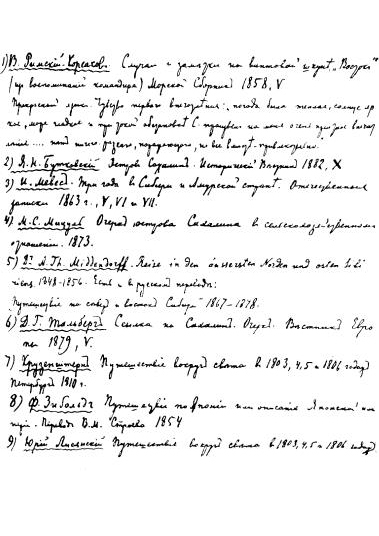 1) В. Римскій-Корсаковъ. Случаи и заметки на винтовой шкунѣ „Востокъ"
(из воспоминаній командира) Морской Сборникъ 1858, V
Прекрасный первое погода была теплая, солнце
море
2) Я. Н. Бутковскій Островъ Сахалинъ. Историческій Вѣстникъ 1882, X
3) И. Мевесъ. Три года в Сибири и Амурской странѣ. Отечественныя
записки 1863 г., V, VI и VII.
4) М. С. Мицуль Очеркъ острова Сахалина в сельскохозяйственномъ
отношеніи. 1873.
5) Dr A. Th. Middendorff. Reise in den äussersten Norden und osten Sibi
riens, 1848-1856. Есть и в русском переводѣ:
Путешествіе на сѣвер и востокъ Сибири 1867-1878.
6) Д. Г. Тальбергъ Ссылка на Сахалинъ. Очеркъ. Вѣстникъ Евро
пы 1879, V.
7) Крузенштернъ Путешествіе вокругъ свѣта в 1803, 4, 5 и 1806 годах
Петербургъ 1810 г.
8) Ф. Зибольдъ Путешествіе по Японіи или описаніе Японской им
періи. Переводъ В. М. Строева 1854
9) Юрій Лисянскій Путешествіе вокругъ свѣта в 1803, 4, 5 и 1806 годах